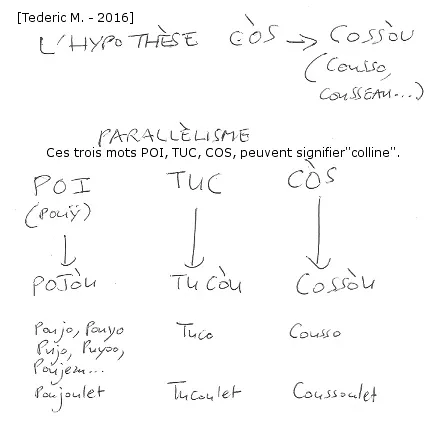 [Tederic M. - 2016]
L'HYPOTHÈSE CÒS → COSSÒU
(COUSSO,
COUSSEAU...)
PARALLÈLISME
Ces trois mots POI, TUC, COS, peuvent signifier"colline".
POI TUC CÒS
(POUŸ)
POJÒU TUCÒU COSSÒU
Poujo, Pouyo Tuco Cousso
Pujo, Puyoo,
Poujeau...
Poujoulet Tucoulet Coussoulet